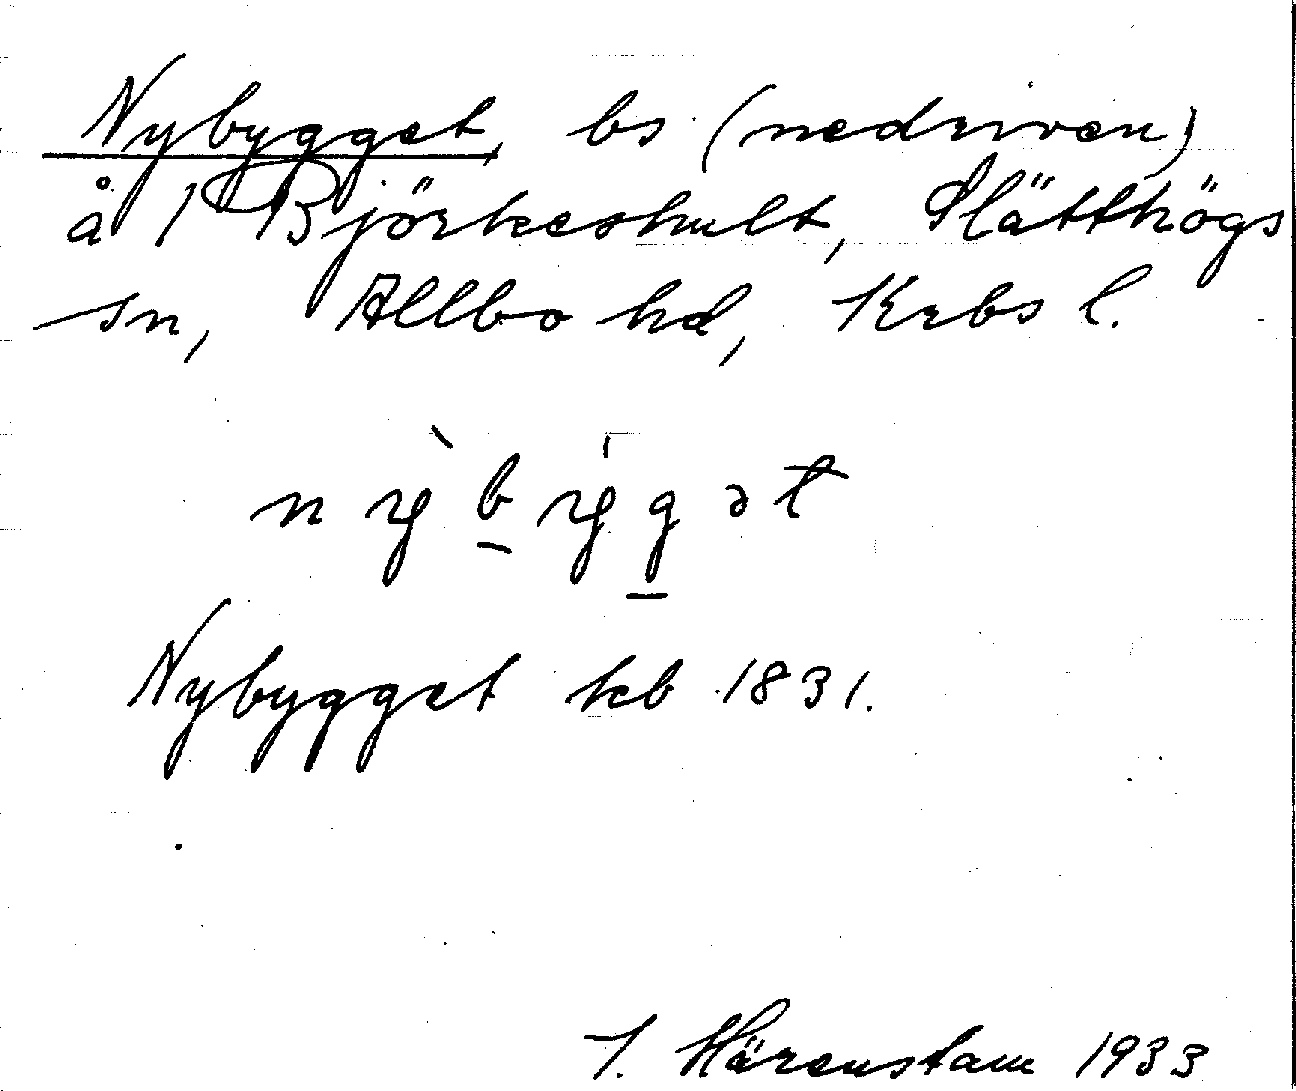 Nybygget, bs (nedriven)
å 1 Björkeshult, Slätthögs
sn, Allbo hd, Krbs l.
nỳbýgət
Nybygget kb 1831.
J. Härenstam 1933